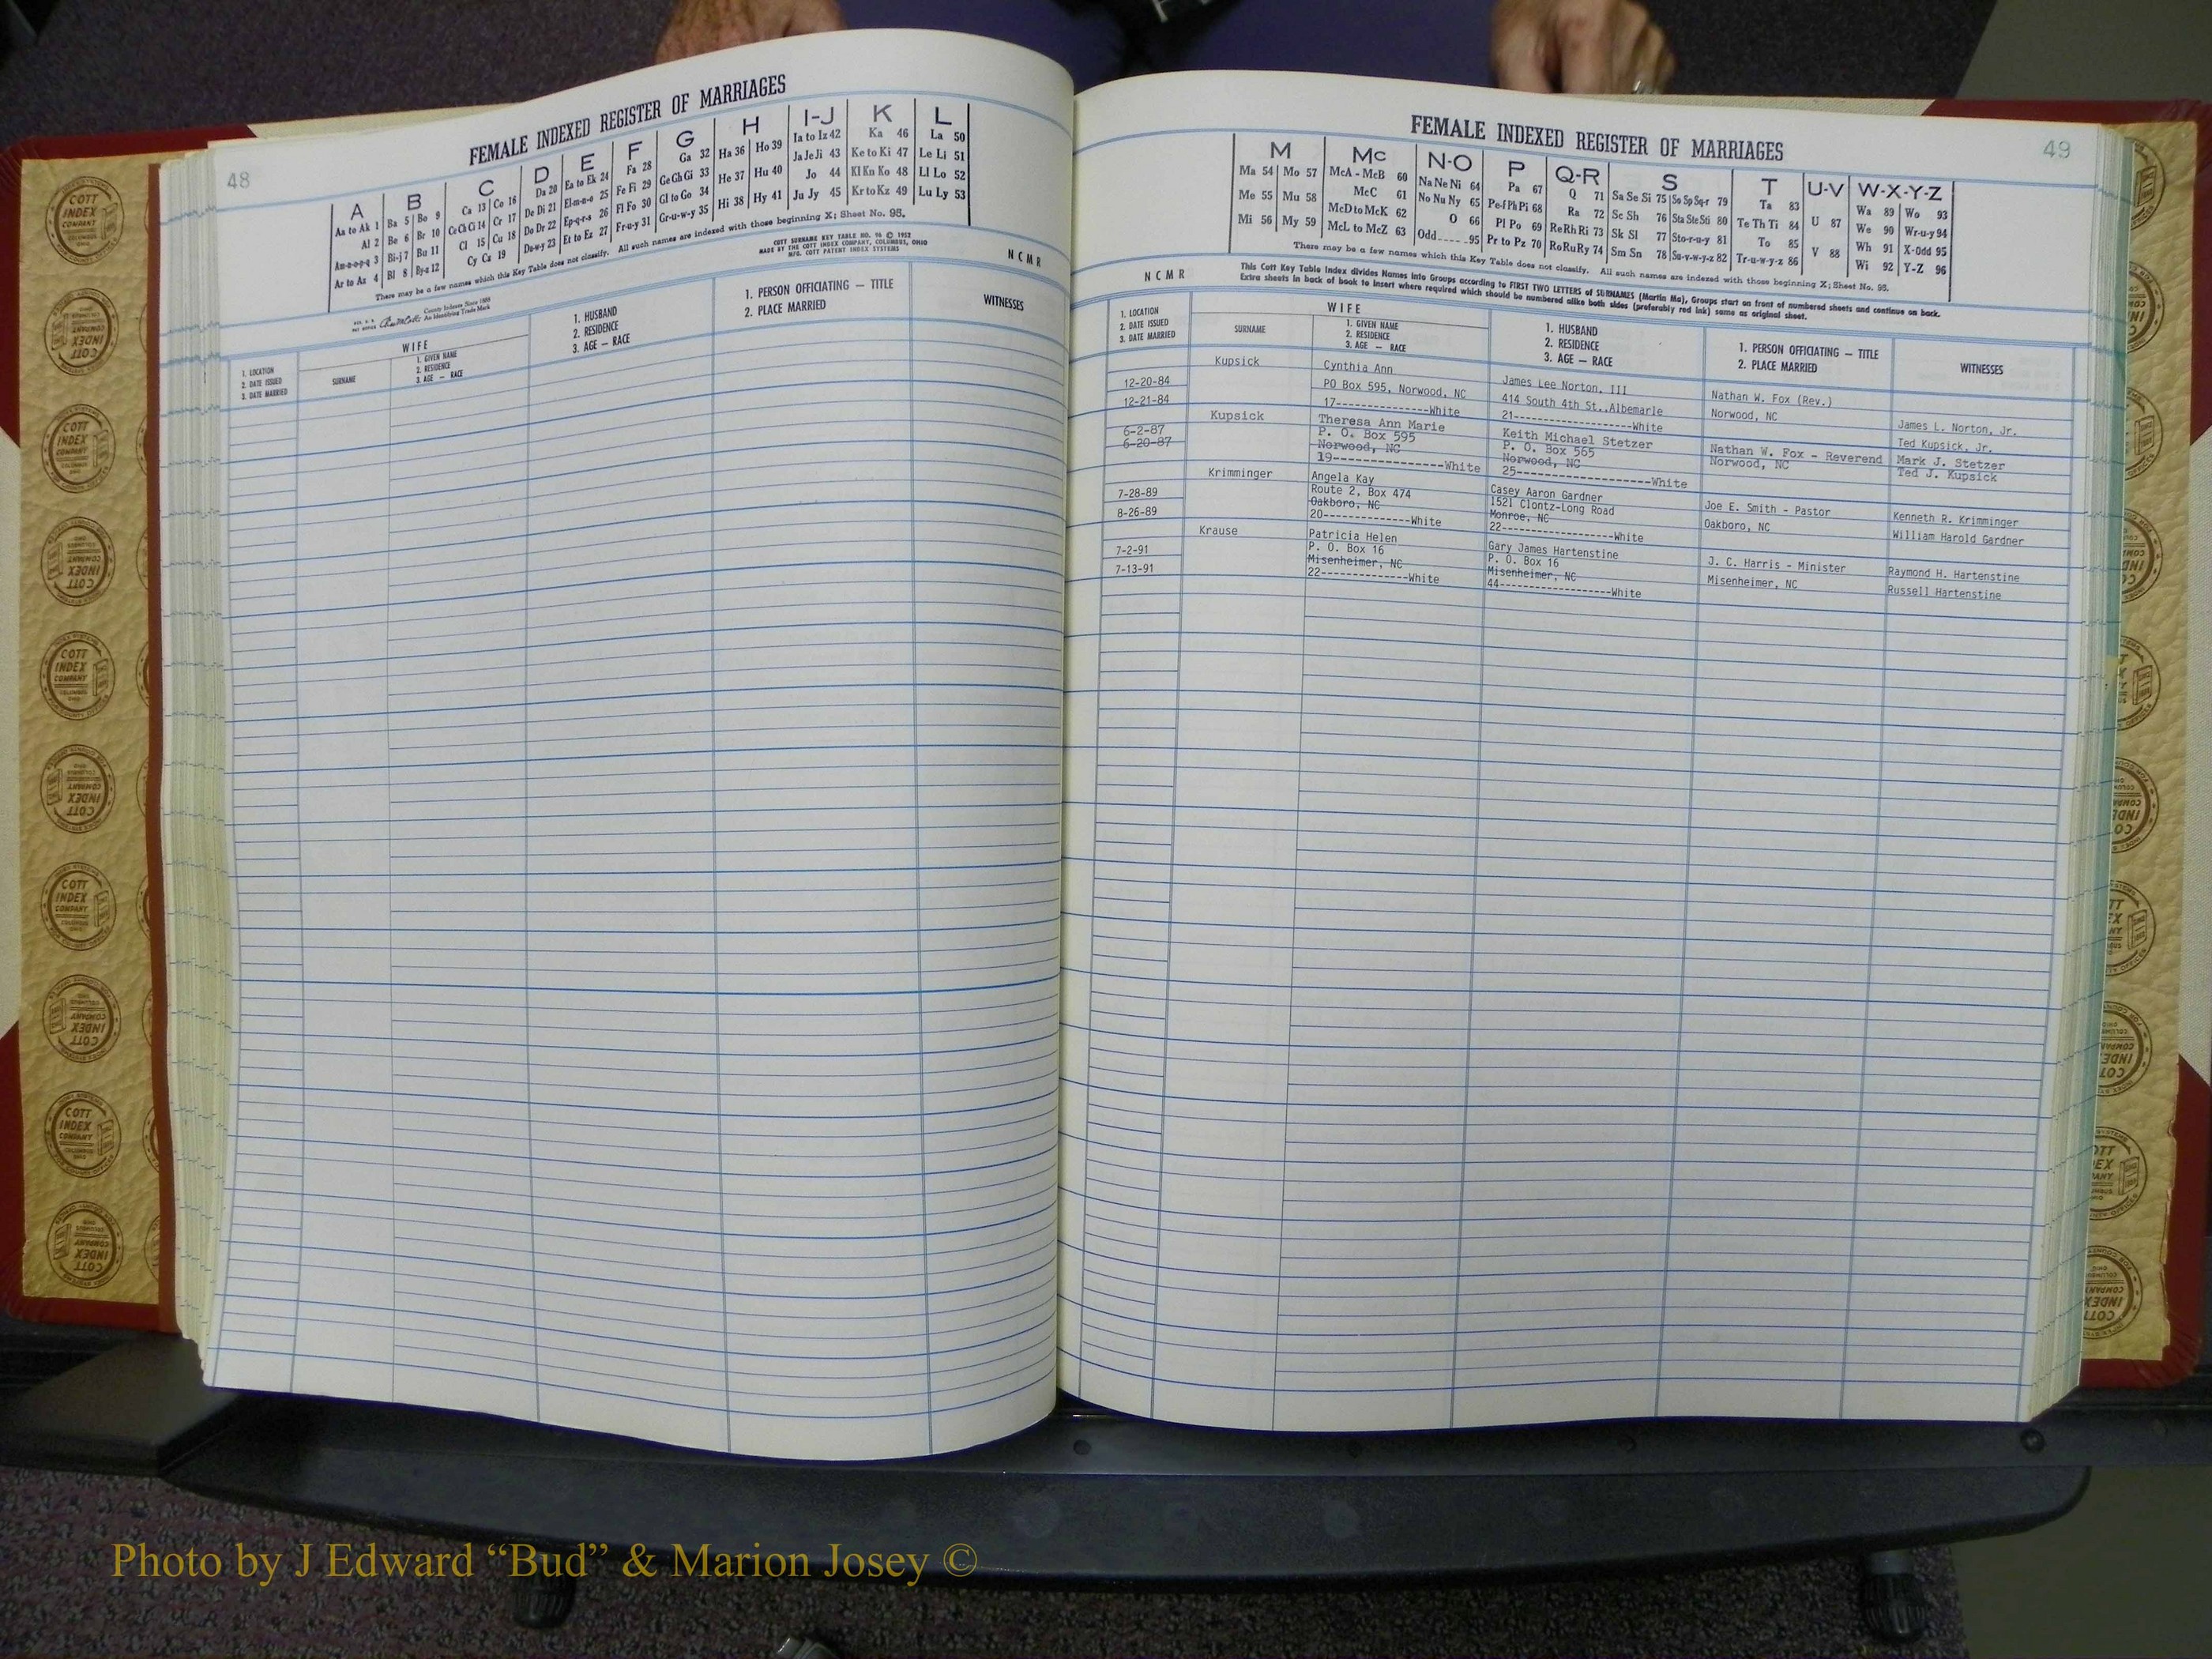 48
FEMALE INDEXED REGISTER OF MARRIAGES
A B C D E F G H I-J K L
Aa to Ak 1 Ba 5 Bo 9 Ca 13 Co 16 Da 20 Ea to Ek 24 Fa 28 Ga 32 Ha 36 Ho 39 Ia to Iz 42 Ka 46 La 50
Al 2 Be 6 Br 10 Ce Ch Ci 14 Cr 17 De Di 21 El-m-n-o 25 Fe Fi 29 Ge Gh Gi 33 He 37 Hu 40 Ja Je Ji 43 Ke to Ki 47 Le Li 51
Am-n-o-p-q 3 Bi-j 7 Bu 11 Cl 15 Cu 18 Do Dr 22 Ep-q-r-s 26 Fl Fo 30 Gl to Go 34 Hi 38 Hy 41 Jo 44 Kl Kn Ko 48 Ll Lo 52
Ar to Az 4 Bl 8 By-z 12 Cy Cz 19 Du-w-y 23 Et to Ez 27 Fr-u-y 31 Gr-u-w-y 35 Ju Jy 45 Kr to Kz 49 Lu Ly 53
There may be a few names which this Key Table does not classify. All such names are indexed with those beginning X; Sheet No. 95.
County Indexes Since 1888
An Identifying Trade Mark
COTT SURNAME KEY TABLE NO. 96 © 1952
MADE BY THE COTT INDEX COMPANY, COLUMBUS, OHIO
MFG. COTT PATENT INDEX SYSTEMS
NCMR
1. LOCATION
2. DATE ISSUED
3. DATE MARRIED
WIFE
SURNAME
1. GIVEN NAME
2. RESIDENCE
3. AGE — RACE
1. HUSBAND
2. RESIDENCE
3. AGE — RACE
1. PERSON OFFICIATING — TITLE
2. PLACE MARRIED
WITNESSES
49
FEMALE INDEXED REGISTER OF MARRIAGES
M Mc N-O P Q-R S T U-V W-X-Y-Z
Ma 54 Mo 57 McA - McB 60 Na Ne Ni 64 Pa 67 Q 71 Sa Se Si 75 So Sp Sq-r 79 Ta 83 U 87 Wa 89 Wo 93
Me 55 Mu 58 McC 61 No Nu Ny 65 Pe-f Ph Pi 68 Ra 72 Sc Sh 76 Sta Ste Sti 80 Te Th Ti 84 V 88 We 90 Wr-u-y 94
Mi 56 My 59 McD to McK 62 O 66 Pl Po 69 Re Rh Ri 73 Sk Sl 77 Sto-r-u-y 81 To 85 Wh 91 X-Odd 95
McL to McZ 63 Odd 95 Pr to Pz 70 Ro Ru Ry 74 Sm Sn 78 Su-v-w-y-z 82 Tr-u-w-y-z 86 Wi 92 Y-Z 96
There may be a few names which this Key Table does not classify. All such names are indexed with those beginning X; Sheet No. 95.
This Cott Key Table Index divides Names into Groups according to FIRST TWO LETTERS of SURNAMES (Martin Ma), Groups start on front of numbered sheets and continue on back.
Extra sheets in back of book to insert where required which should be numbered alike both sides (preferably red ink) same as original sheet.
NCMR
1. LOCATION
2. DATE ISSUED
3. DATE MARRIED
WIFE
SURNAME
1. GIVEN NAME
2. RESIDENCE
3. AGE — RACE
1. HUSBAND
2. RESIDENCE
3. AGE — RACE
1. PERSON OFFICIATING — TITLE
2. PLACE MARRIED
WITNESSES
Kupsick Cynthia Ann James Lee Norton, III Nathan W. Fox (Rev.)
12-20-84 PO Box 595, Norwood, NC 414 South 4th St.,Albemarle Norwood, NC James L. Norton, Jr.
12-21-84 17---------------White 21-------------------White Ted Kupsick, Jr.
Kupsick Theresa Ann Marie Keith Michael Stetzer Nathan W. Fox - Reverend Mark J. Stetzer
6-2-87 P. O. Box 595 P. O. Box 565 Norwood, NC Ted J. Kupsick
6-20-87 Norwood, NC Norwood, NC
19-----------------White 25---------------------White
Krimminger Angela Kay Casey Aaron Gardner Joe E. Smith - Pastor Kenneth R. Krimminger
7-28-89 Route 2, Box 474 1521 Clontz-Long Road Oakboro, NC William Harold Gardner
8-26-89 Oakboro, NC Monroe, NC
20--------------White 22-------------------White
Krause Patricia Helen Gary James Hartenstine J. C. Harris - Minister Raymond H. Hartenstine
7-2-91 P. O. Box 16 P. O. Box 16 Misenheimer, NC Russell Hartenstine
7-13-91 Misenheimer, NC Misenheimer, NC
22--------------White 44-------------------White
COTT
INDEX
COMPANY
Photo by J Edward “Bud” & Marion Josey ©